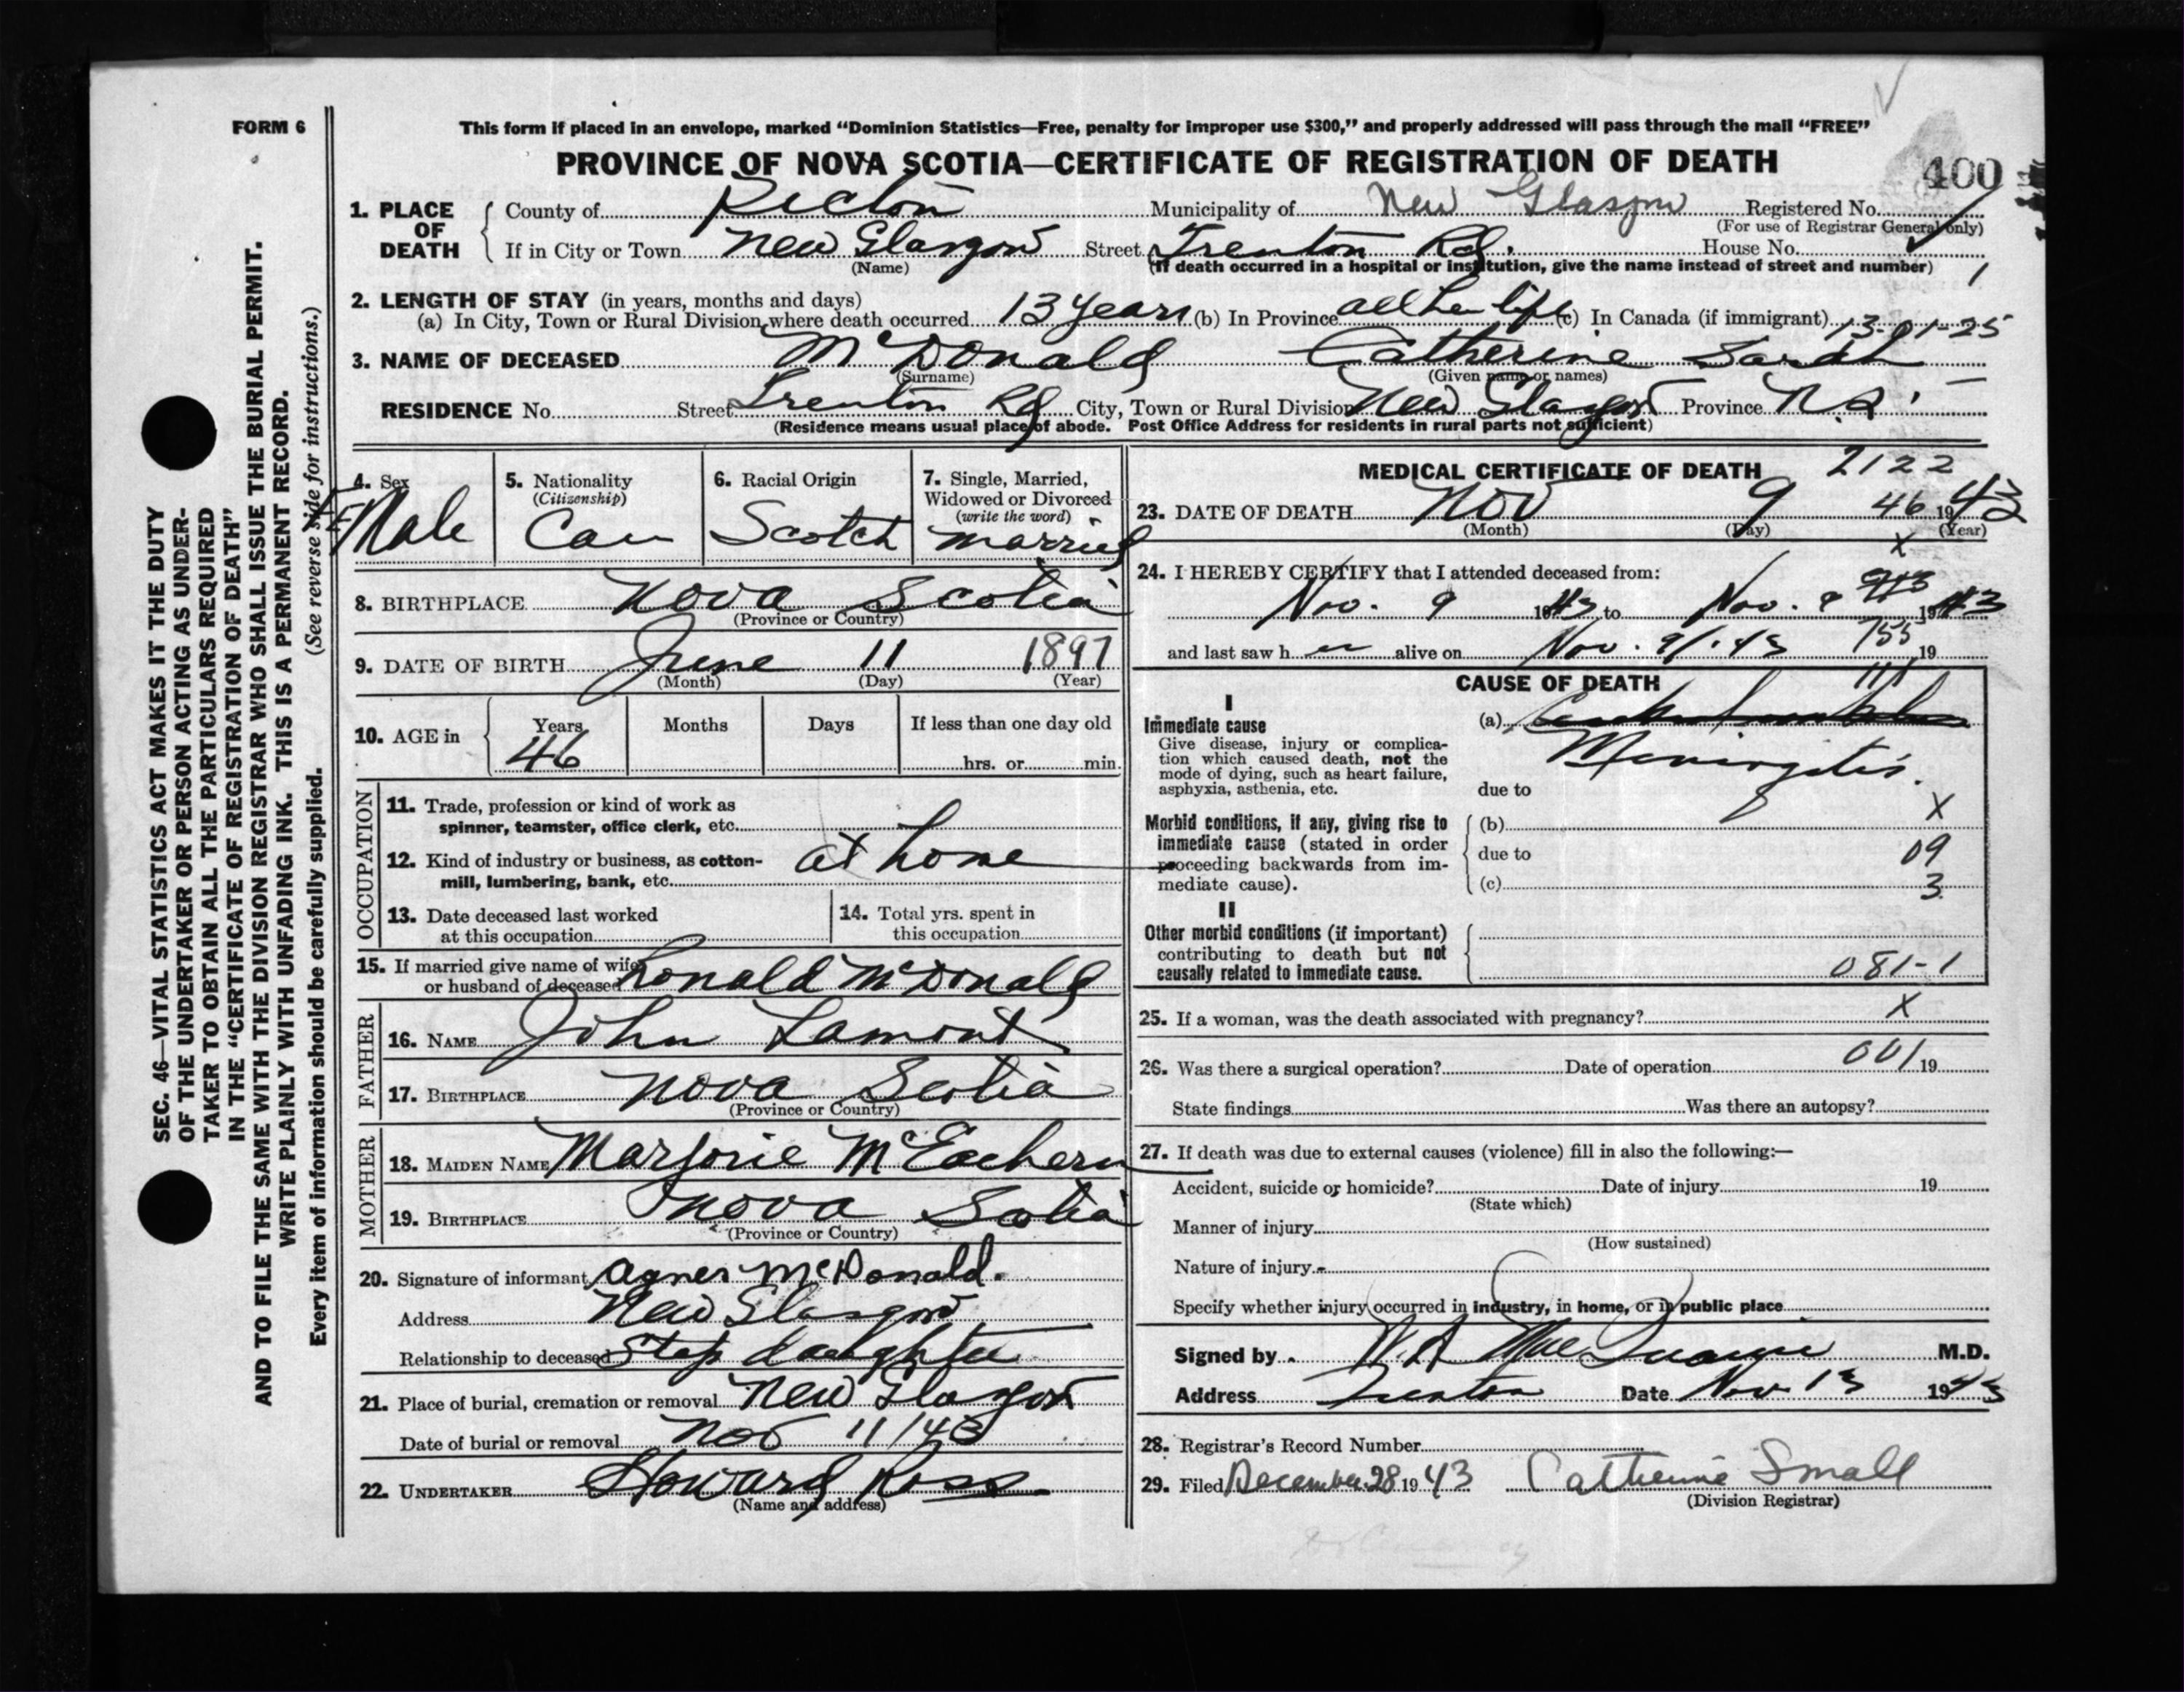 FORM 6
This form if placed in an envelope, marked "Dominion Statistics—Free, penalty for improper use $300," and properly addressed will pass through the mail "FREE"
PROVINCE OF NOVA SCOTIA—CERTIFICATE OF REGISTRATION OF DEATH
400
1. PLACE OF DEATH { County of Pictou Municipality of New Glasgow Registered No.
(For use of Registrar General only)
If in City or Town New Glasgow Street Trenton Rd. House No.
(Name) (If death occurred in a hospital or institution, give the name instead of street and number) 1
2. LENGTH OF STAY (in years, months and days)
(a) In City, Town or Rural Division where death occurred 13 years (b) In Province all her life (c) In Canada (if immigrant) 13.01-25
3. NAME OF DECEASED McDonald Catherine Sarah
(Surname) (Given name or names)
RESIDENCE No. Street Trenton Rd City, Town or Rural Division New Glasgow Province N.S.
(Residence means usual place of abode. Post Office Address for residents in rural parts not sufficient)
4. Sex FeMale
5. Nationality (Citizenship) Can
6. Racial Origin Scotch
7. Single, Married, Widowed or Divorced (write the word) married
8. BIRTHPLACE Nova Scotia
(Province or Country)
9. DATE OF BIRTH June 11 1897
(Month) (Day) (Year)
10. AGE in { Years 46 Months Days If less than one day old
hrs. or min.
OCCUPATION
11. Trade, profession or kind of work as spinner, teamster, office clerk, etc.
12. Kind of industry or business, as cotton-mill, lumbering, bank, etc. at home
13. Date deceased last worked at this occupation
14. Total yrs. spent in this occupation
15. If married give name of wife or husband of deceased Ronald McDonald
FATHER
16. NAME John Lamont
17. BIRTHPLACE Nova Scotia
(Province or Country)
MOTHER
18. MAIDEN NAME Marjorie McEachern
19. BIRTHPLACE Nova Scotia
(Province or Country)
20. Signature of informant Agnes McDonald.
Address New Glasgow
Relationship to deceased Step daughter
21. Place of burial, cremation or removal New Glasgow
Date of burial or removal Nov 11/43
22. UNDERTAKER Howard Ross
(Name and address)
MEDICAL CERTIFICATE OF DEATH 2122
23. DATE OF DEATH Nov 9 46 1943
(Month) (Day) (Year)
X
24. I HEREBY CERTIFY that I attended deceased from:
Nov. 9 1943 to Nov. 9 1943
and last saw h er alive on Nov. 9/.43 755 19
CAUSE OF DEATH
I
Immediate cause (a)
Give disease, injury or complication which caused death, not the mode of dying, such as heart failure, asphyxia, asthenia, etc.
Meningitis.
due to
Morbid conditions, if any, giving rise to immediate cause (stated in order proceeding backwards from immediate cause).
(b) X
due to 09
(c) 3
II
Other morbid conditions (if important) contributing to death but not causally related to immediate cause.
081-1
25. If a woman, was the death associated with pregnancy? X
26. Was there a surgical operation? Date of operation 001 19
State findings Was there an autopsy?
27. If death was due to external causes (violence) fill in also the following:—
Accident, suicide or homicide? Date of injury 19
(State which)
Manner of injury
(How sustained)
Nature of injury
Specify whether injury occurred in industry, in home, or in public place
Signed by W.A. M.D.
Address Trenton Date Nov 13 1943
28. Registrar's Record Number
29. Filed December 28 1943 Catherine Small
(Division Registrar)
SEC. 46—VITAL STATISTICS ACT MAKES IT THE DUTY
OF THE UNDERTAKER OR PERSON ACTING AS UNDER-
TAKER TO OBTAIN ALL THE PARTICULARS REQUIRED
IN THE "CERTIFICATE OF REGISTRATION OF DEATH"
AND TO FILE THE SAME WITH THE DIVISION REGISTRAR WHO SHALL ISSUE THE BURIAL PERMIT.
WRITE PLAINLY WITH UNFADING INK. THIS IS A PERMANENT RECORD.
Every item of information should be carefully supplied. (See reverse side for instructions.)